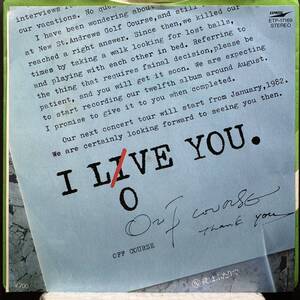 interviews
our vacations. No
I have been wondering about
at New St.Andrews Golf Course,and still
reached a right answer. Since then,we killed our
times by taking a walk looking for lost balls,
and playing with each other in bed. Referring to
the thing that requires final decision,please be
patient, and you will get it soon. We are expecting
to start recording our twelfth album around august.
I promise to give it to you when completed.
Our next concert tour will start from January,1982.
We are certainly looking forward to seeing you then.
I LIVE YOU.
O
OFF COURSE
Thank you
OFF COURSE
ETP-17169
STEREO
¥700